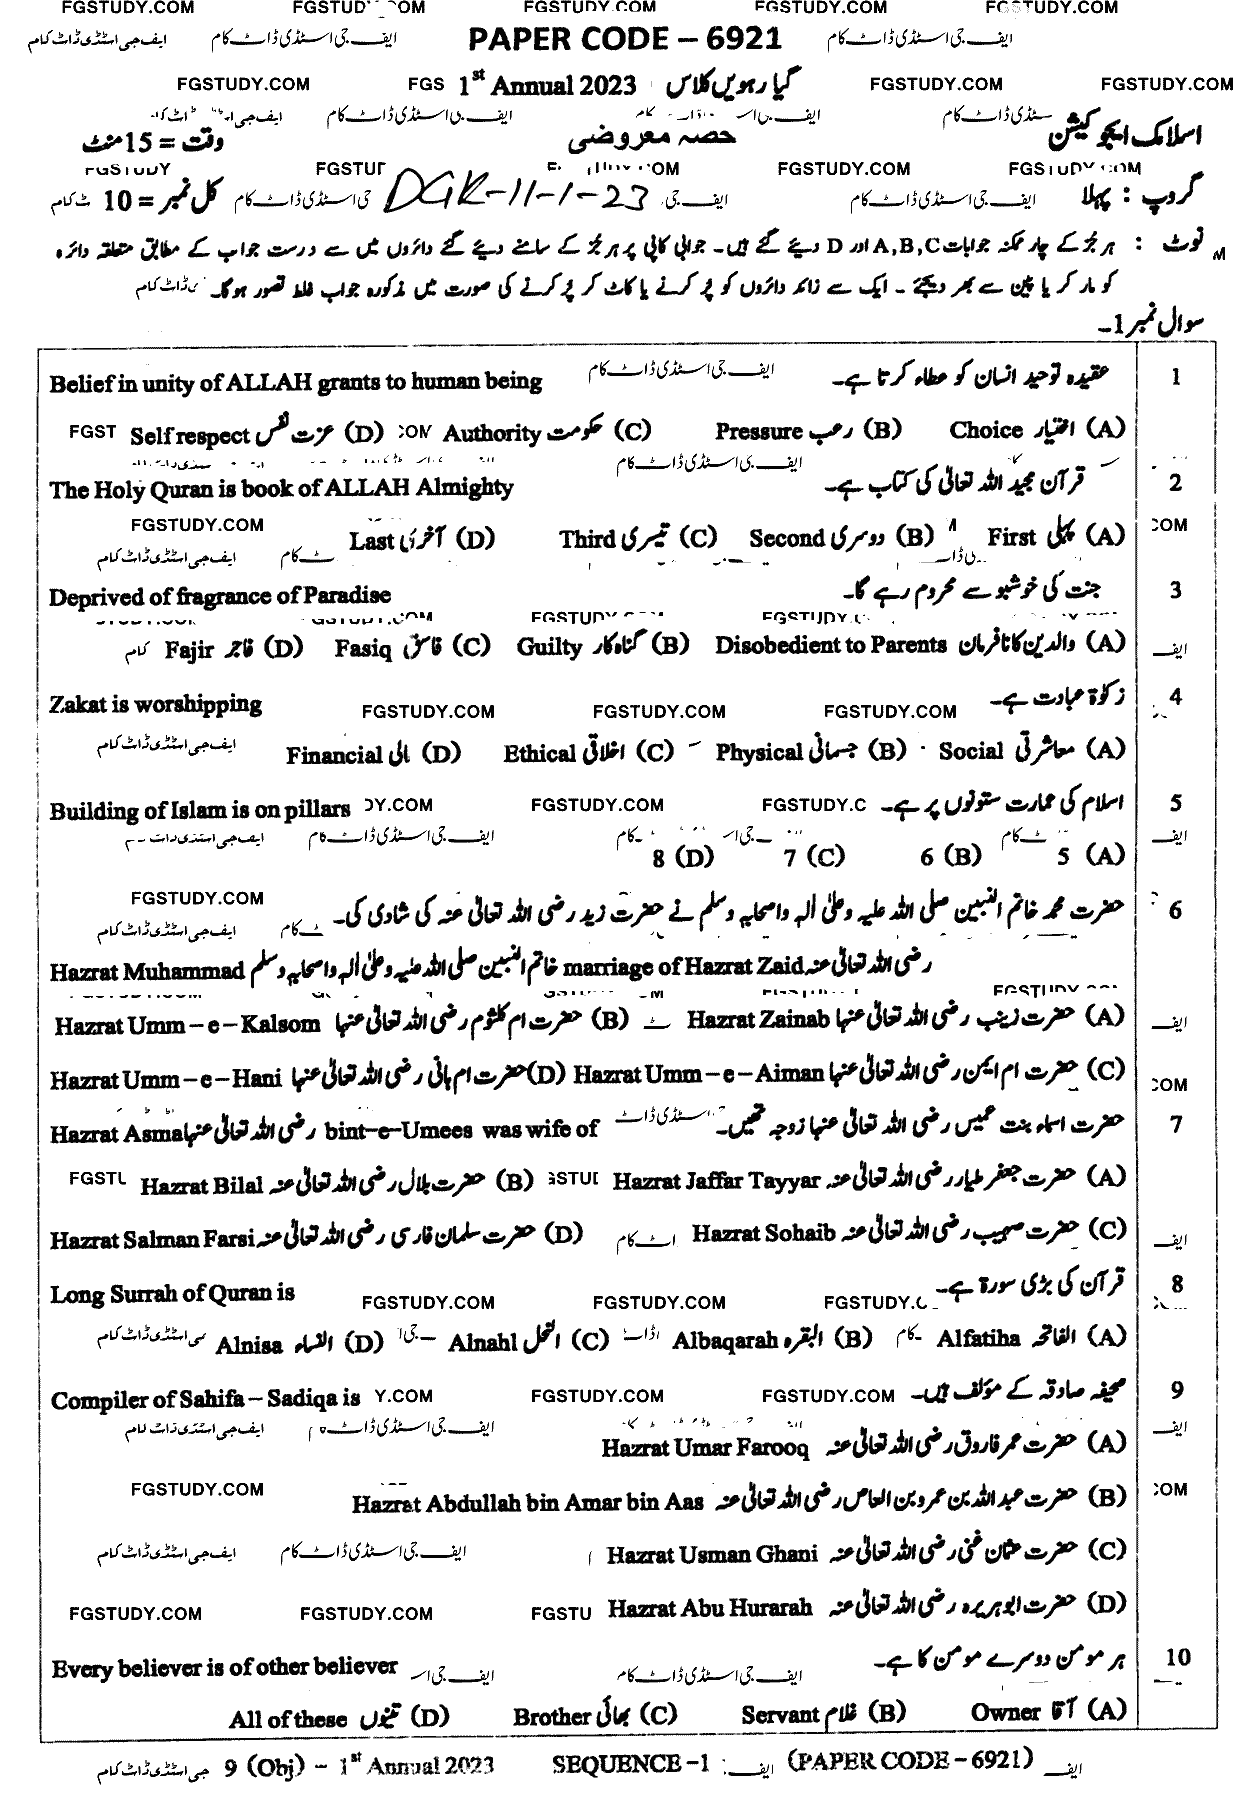 FGSTUDY.COM FGSTUDY.COM FGSTUDY.COM FGSTUDY.COM FGSTUDY.COM
ایف جی اسٹڈی ڈاٹ کام ایف جی اسٹڈی ڈاٹ کام PAPER CODE – 6921 ایف جی اسٹڈی ڈاٹ کام
FGSTUDY.COM FGS 1st Annual 2023 گیارہویں کلاس FGSTUDY.COM FGSTUDY.COM
اسلامک ایجوکیشن حصہ معروضی وقت = 15 منٹ
گروپ : پہلا DGK-11-1-23 کل نمبر = 10
نوٹ : ہر جُز کے چار ممکنہ جوابات A,B,C اور D دیئے گئے ہیں۔ جوابی کاپی پر ہر جُز کے سامنے دیئے گئے دائروں میں سے درست جواب کے مطابق متعلقہ دائرہ
کو مارکر یا پین سے بھر دیجئے ۔ ایک سے زائد دائروں کو پُر کرنے یا کاٹ کر پُر کرنے کی صورت میں مذکورہ جواب غلط تصور ہوگا۔
سوال نمبر 1۔
1 عقیدہ توحید انسان کو عطاء کرتا ہے۔ Belief in unity of ALLAH grants to human being
(A) اختیار Choice (B) رعب Pressure (C) حکومت Authority (D) عزت نفس Self respect
2 قرآن مجید اللہ تعالیٰ کی کتاب ہے۔ The Holy Quran is book of ALLAH Almighty
(A) پہلی First (B) دوسری Second (C) تیسری Third (D) آخری Last
3 جنت کی خوشبو سے محروم رہے گا۔ Deprived of fragrance of Paradise
(A) والدین کا نافرمان Disobedient to Parents (B) گناہگار Guilty (C) فاسق Fasiq (D) فاجر Fajir
4 زکوٰۃ عبادت ہے۔ Zakat is worshipping
(A) معاشرتی Social (B) جسمانی Physical (C) اخلاقی Ethical (D) مالی Financial
5 اسلام کی عمارت ستونوں پر ہے۔ Building of Islam is on pillars
(A) 5 (B) 6 (C) 7 (D) 8
6 حضرت محمد خاتم النبیین صلی اللہ علیہ وعلیٰ آلہ واصحابہ وسلم نے حضرت زید رضی اللہ تعالیٰ عنہ کی شادی کی۔
Hazrat Muhammad خاتم النبیین صلی اللہ علیہ وعلیٰ آلہ واصحابہ وسلم marriage of Hazrat Zaid رضی اللہ تعالیٰ عنہ
(A) حضرت زینب رضی اللہ تعالیٰ عنہا Hazrat Zainab (B) حضرت ام کلثوم رضی اللہ تعالیٰ عنہا Hazrat Umm – e – Kalsom
(C) حضرت ام ایمن رضی اللہ تعالیٰ عنہا Hazrat Umm – e – Aiman (D) حضرت ام ہانی رضی اللہ تعالیٰ عنہا Hazrat Umm – e – Hani
7 حضرت اسماء بنت عمیس رضی اللہ تعالیٰ عنہا زوجہ تھیں۔ Hazrat Asma رضی اللہ تعالیٰ عنہا bint–e–Umees was wife of
(A) حضرت جعفر طیار رضی اللہ تعالیٰ عنہ Hazrat Jaffar Tayyar (B) حضرت بلال رضی اللہ تعالیٰ عنہ Hazrat Bilal
(C) حضرت صہیب رضی اللہ تعالیٰ عنہ Hazrat Sohaib (D) حضرت سلمان فارسی رضی اللہ تعالیٰ عنہ Hazrat Salman Farsi
8 قرآن کی بڑی سورۃ ہے۔ Long Surrah of Quran is
(A) الفاتحہ Alfatiha (B) البقرہ Albaqarah (C) النحل Alnahl (D) النساء Alnisa
9 صحیفہ صادقہ کے مؤلف ہیں۔ Compiler of Sahifa – Sadiqa is
(A) حضرت عمر فاروق رضی اللہ تعالیٰ عنہ Hazrat Umar Farooq
(B) حضرت عبد اللہ بن عمرو بن العاص رضی اللہ تعالیٰ عنہ Hazrat Abdullah bin Amar bin Aas
(C) حضرت عثمان غنی رضی اللہ تعالیٰ عنہ Hazrat Usman Ghani
(D) حضرت ابو ہریرہ رضی اللہ تعالیٰ عنہ Hazrat Abu Hurarah
10 ہر مومن دوسرے مومن کا ہے۔ Every believer is of other believer
(A) آقا Owner (B) غلام Servant (C) بھائی Brother (D) تینوں All of these
9 (Obj) – 1st Annual 2023 SEQUENCE -1 (PAPER CODE – 6921)